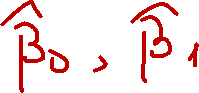 β̂₀, β̂₁